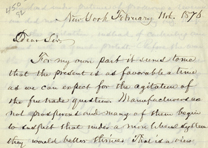 New York February 11th. 1876
Dear Sir.
For my own part it seems to me
that the present is as favorable a time
as we can expect for the agitation of
the free trade question. Manufacturers are
not prosperous and many of them begin
to suspect that under a more liberal system
they would better thrive. That is a view